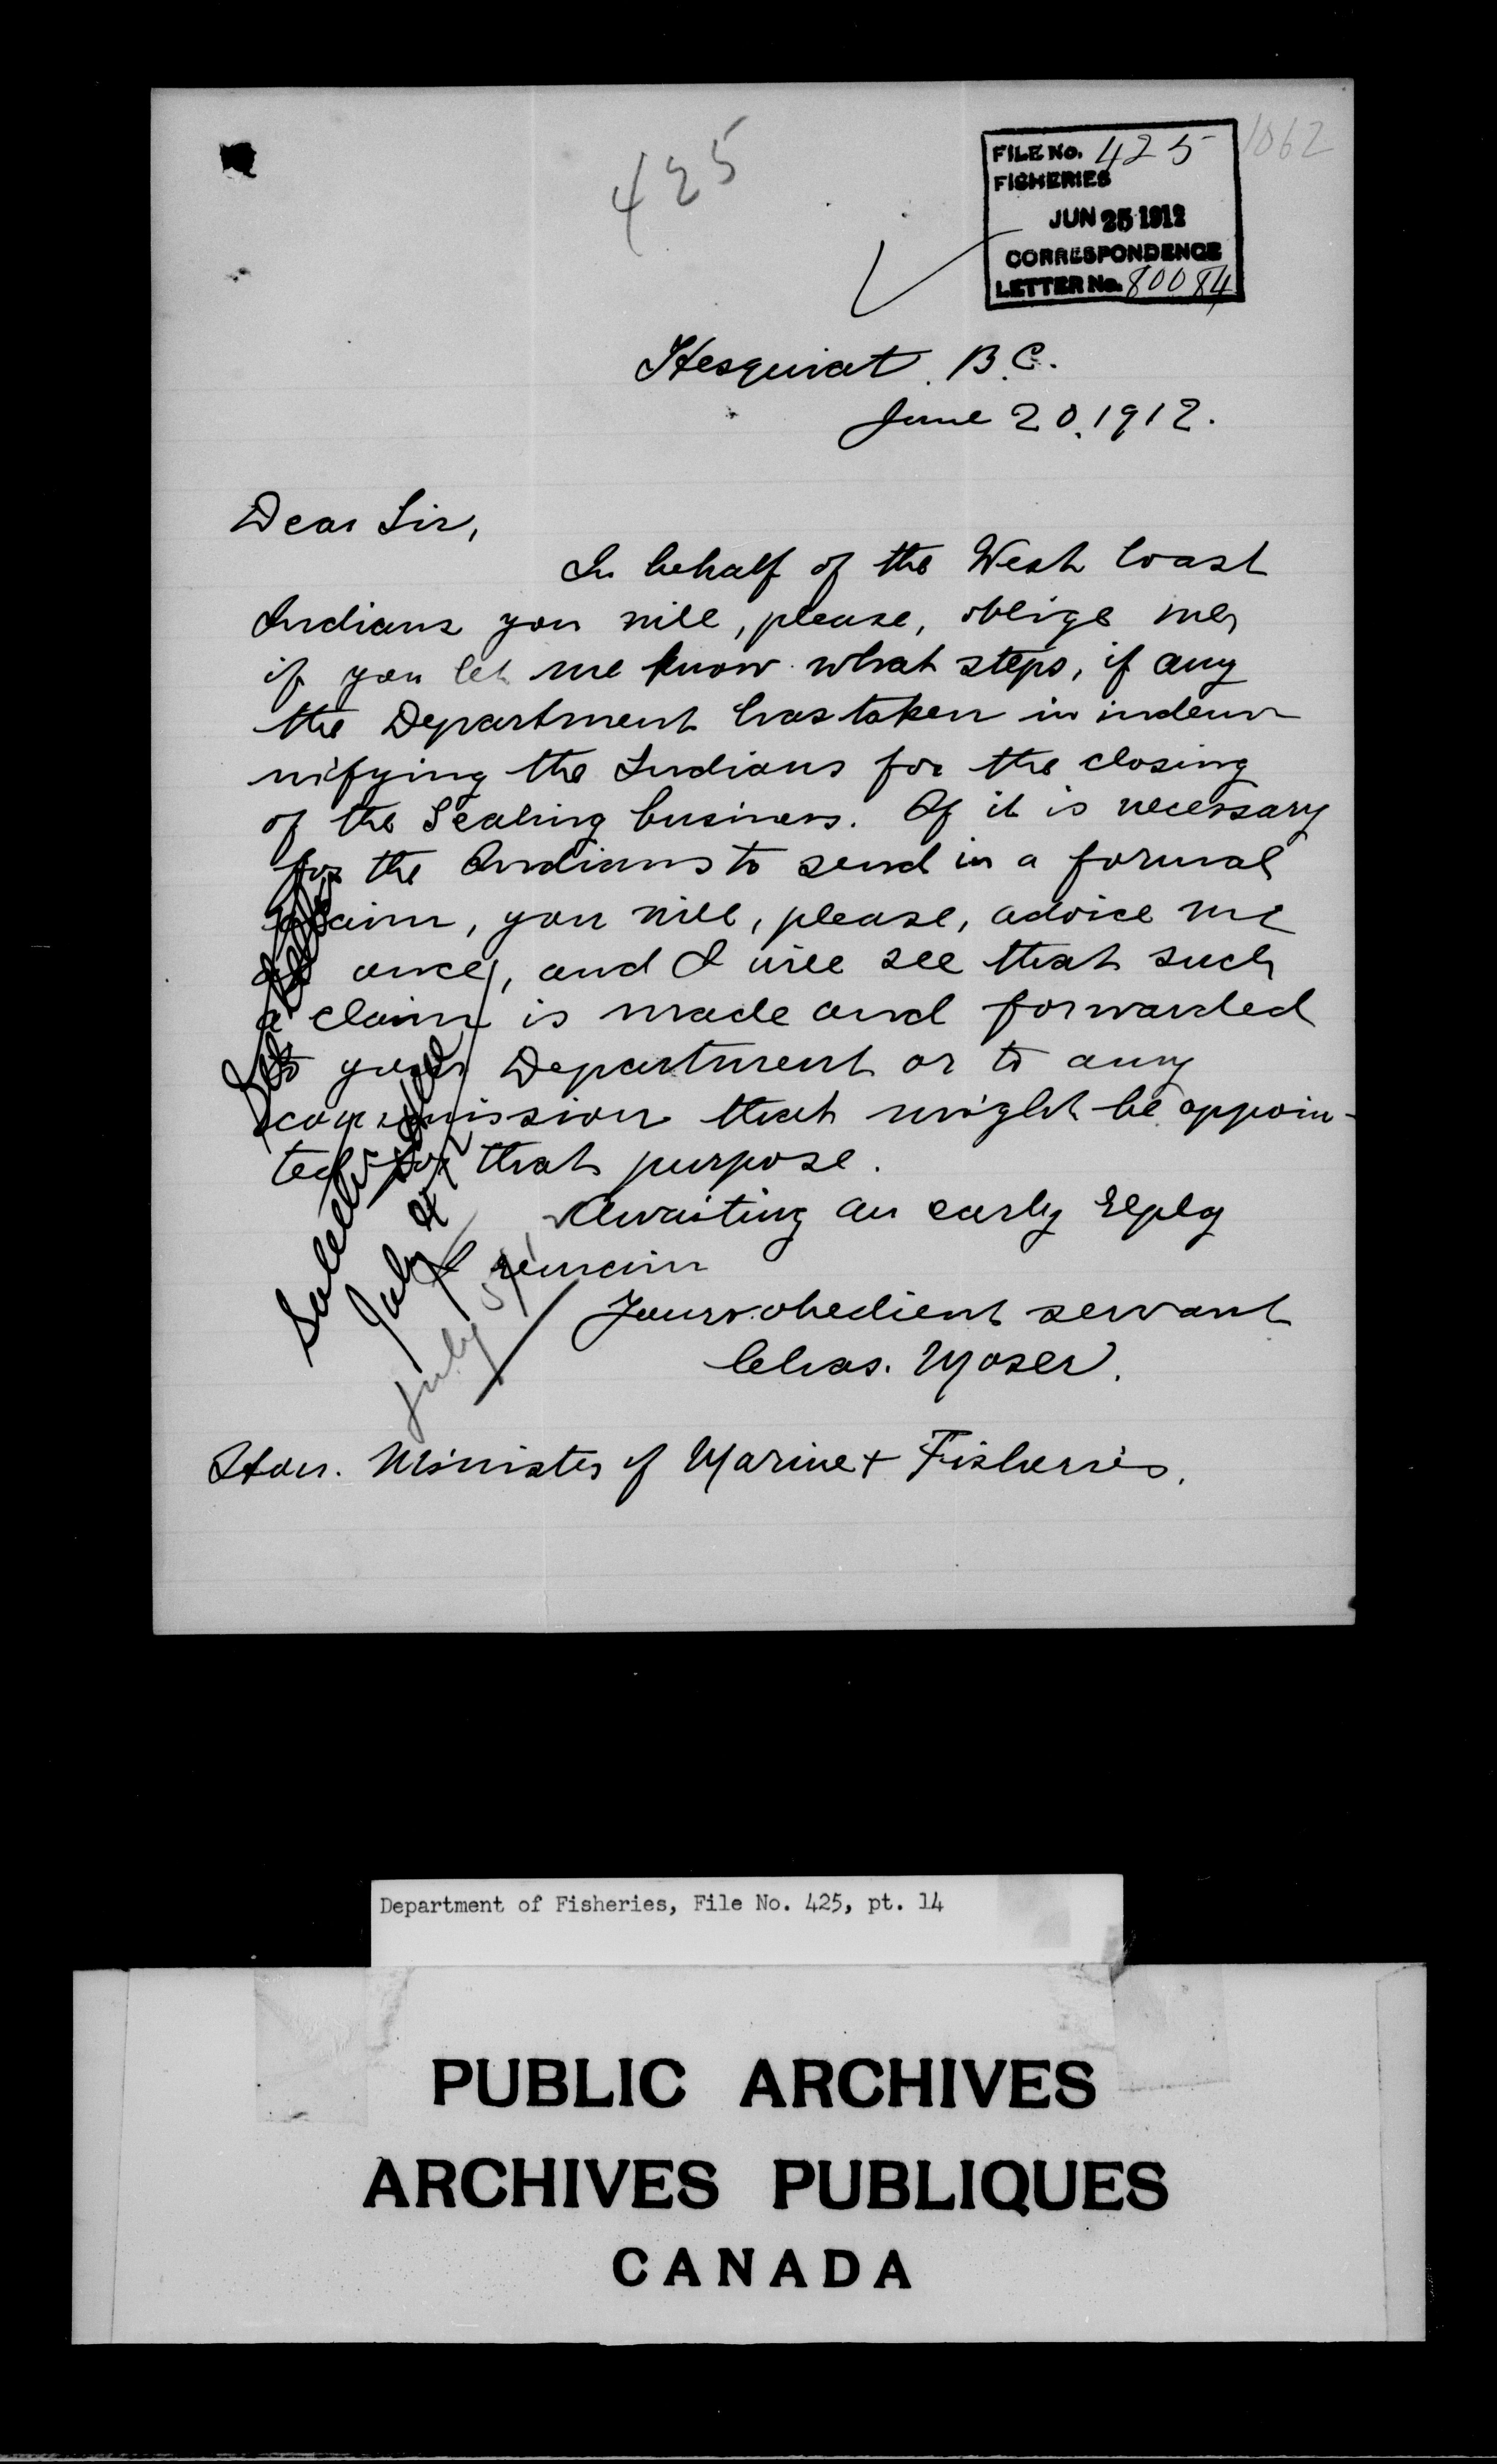 425
1062
FILE No. 425
FISHERIES
JUN 25 1912
CORRESPONDENCE
LETTER No. 80084
Hesquiat. B.C.
June 20, 1912.
Dear Sir,
In behalf of the West Coast
Indians you will, please, oblige me,
if you let me know what steps, if any
the Department has taken in indem
nifying the Indians for the closing
of the Sealing business. If it is necessary
for the Indians to send in a formal
claim, you will, please, advice me
at once, and I will see that such
a claim is made and forwarded
to your Department or to any
commission that might be appoin-
ted for that purpose.
Awaiting an early reply
I remain
Your obedient servant
Chas. Moser.
Hon. Minister of Marine & Fisheries.
July 4/12
July 5/12
Department of Fisheries, File No. 425, pt. 14
PUBLIC ARCHIVES
ARCHIVES PUBLIQUES
CANADA